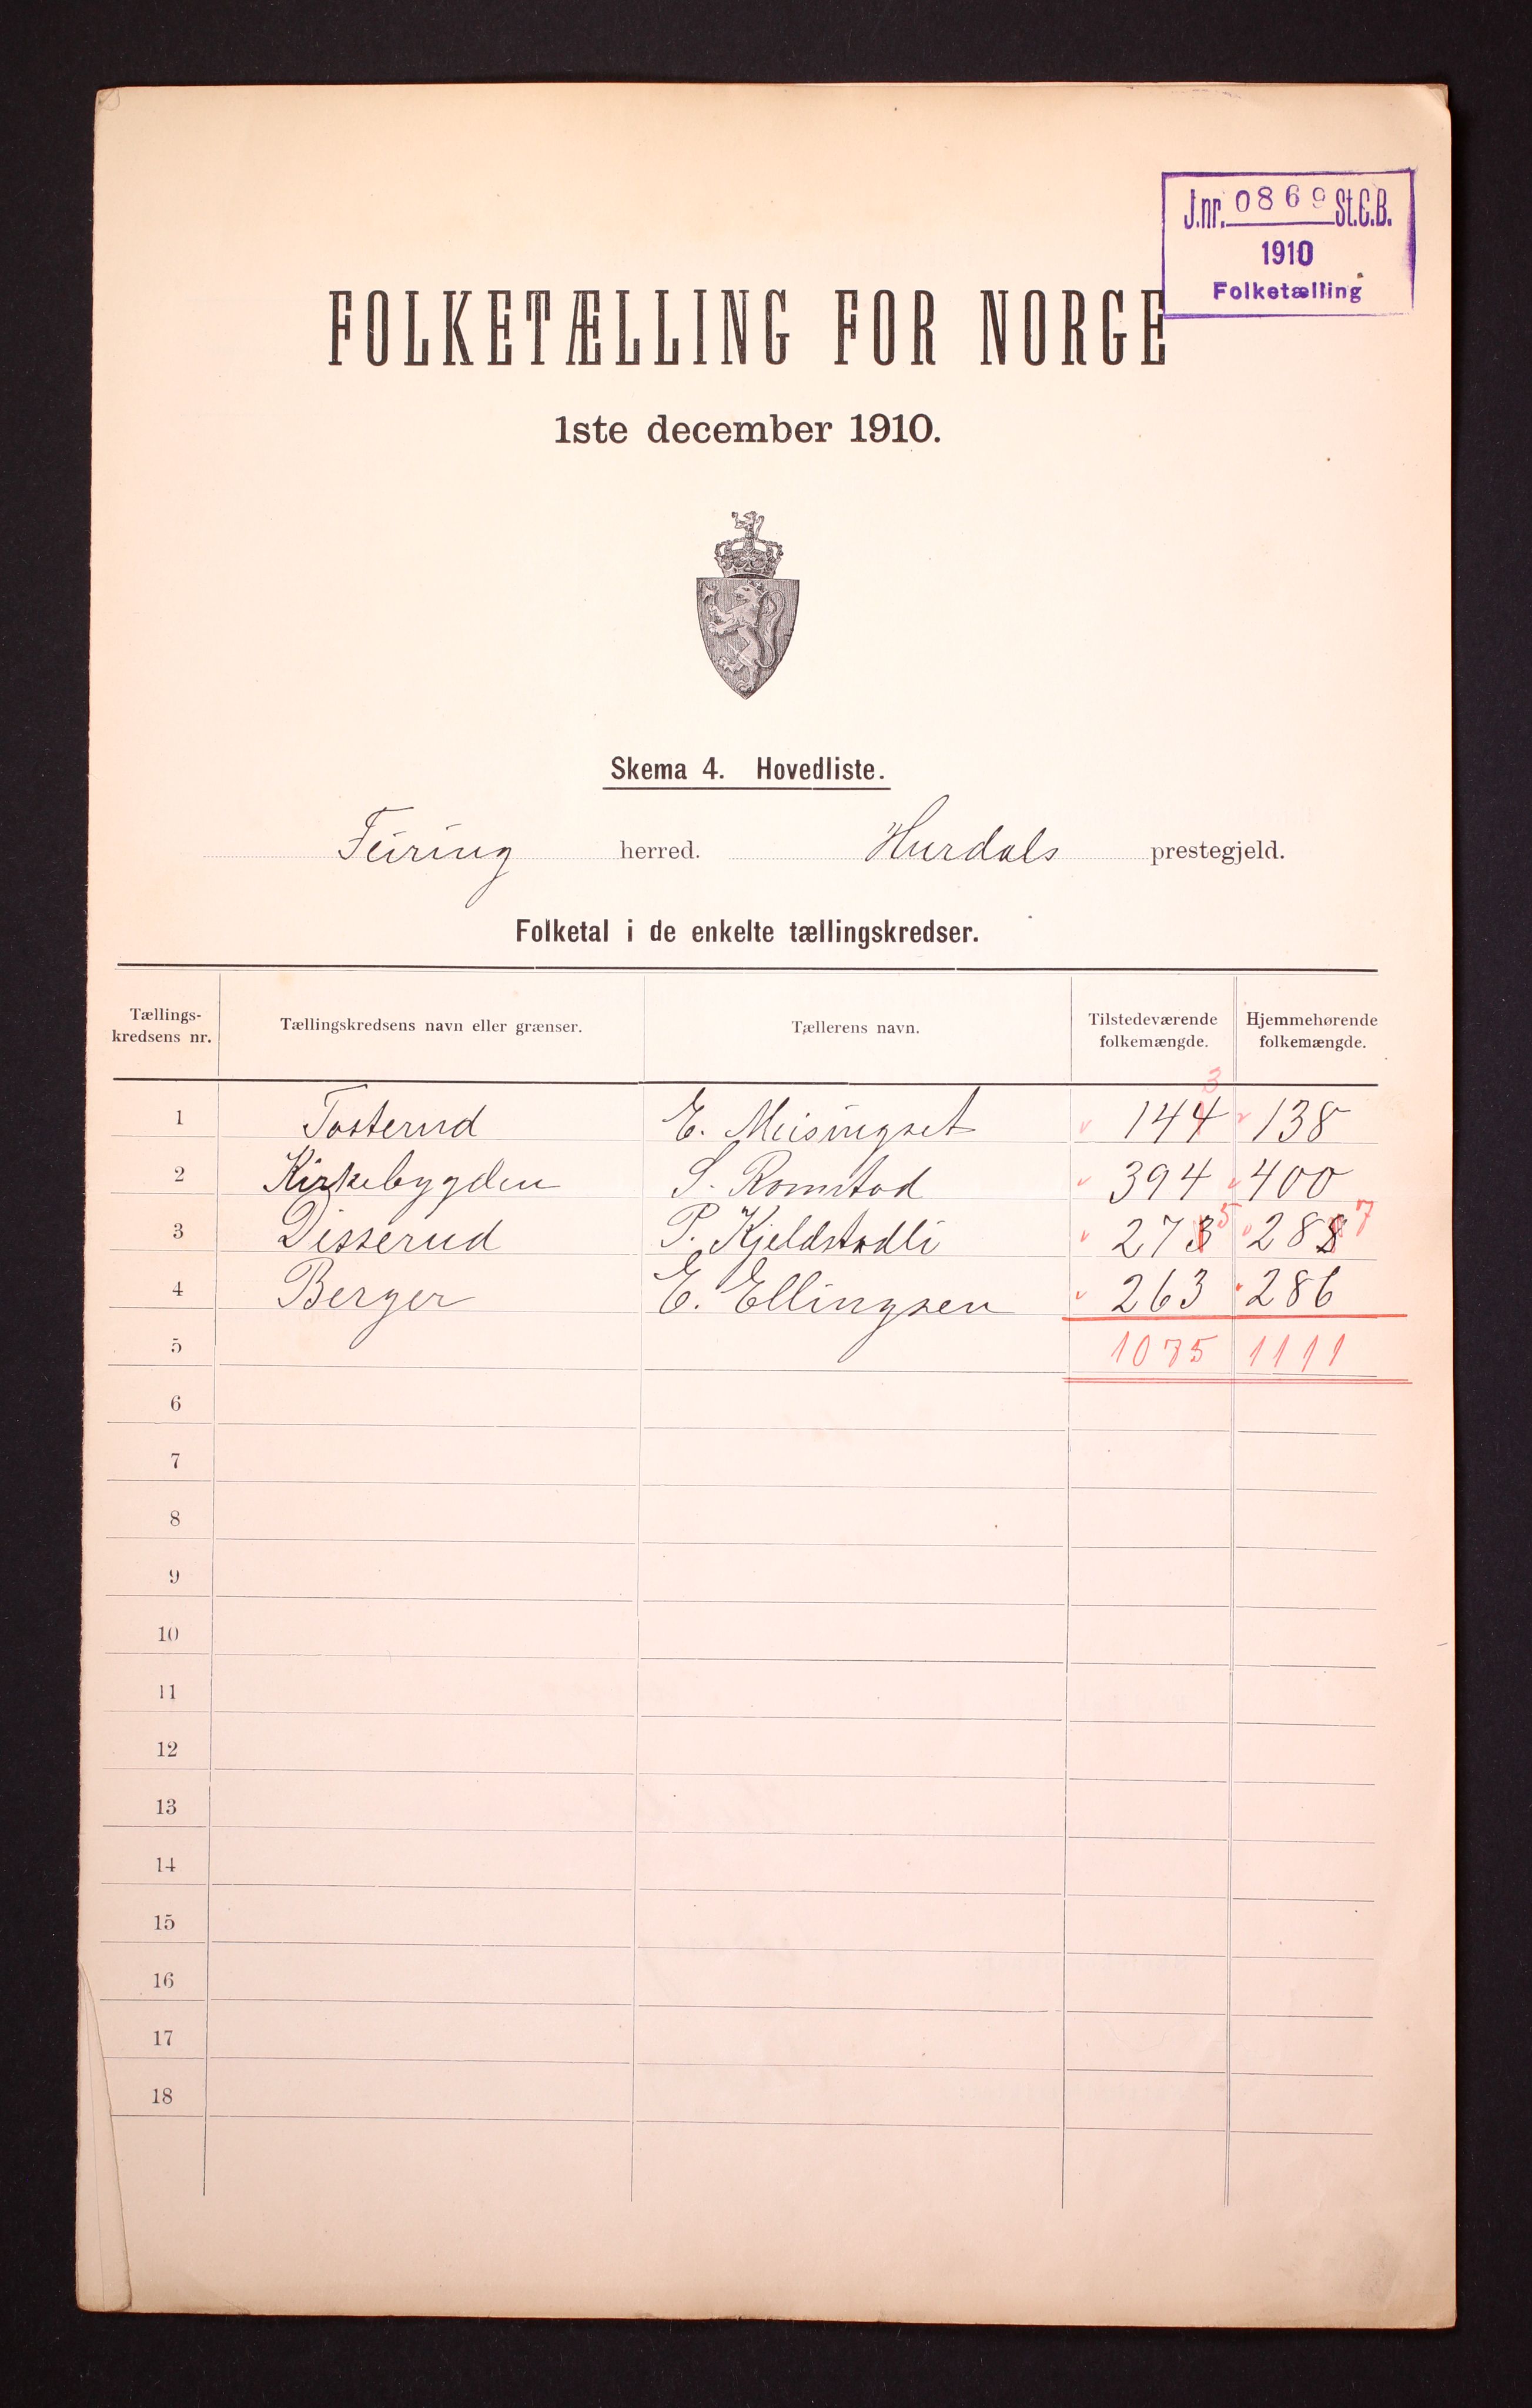 J.nr. 0869 St.C.B.
1910
Folketælling
FOLKETÆLLING FOR NORGE
1ste december 1910.
Skema 4. Hovedliste.
Feiring herred. Hurdals prestegjeld.
Folketal i de enkelte tællingskredser.
Tællings-
kredsens nr.
Tællingskredsens navn eller grænser.
Tællerens navn.
Tilstedeværende
folkemængde.
Hjemmehørende
folkemængde.
3
1 Tosterud E. Meisingset v 144 v 138
2 Kirkebygden S. Romstad v 394 v 400
3 Disserud P. Kjeldstadli v 273 5 v 288 7
4 Berger E. Ellingsen v 263 v 286
5 1075 1111
6
7
8
9
10
11
12
13
14
15
16
17
18